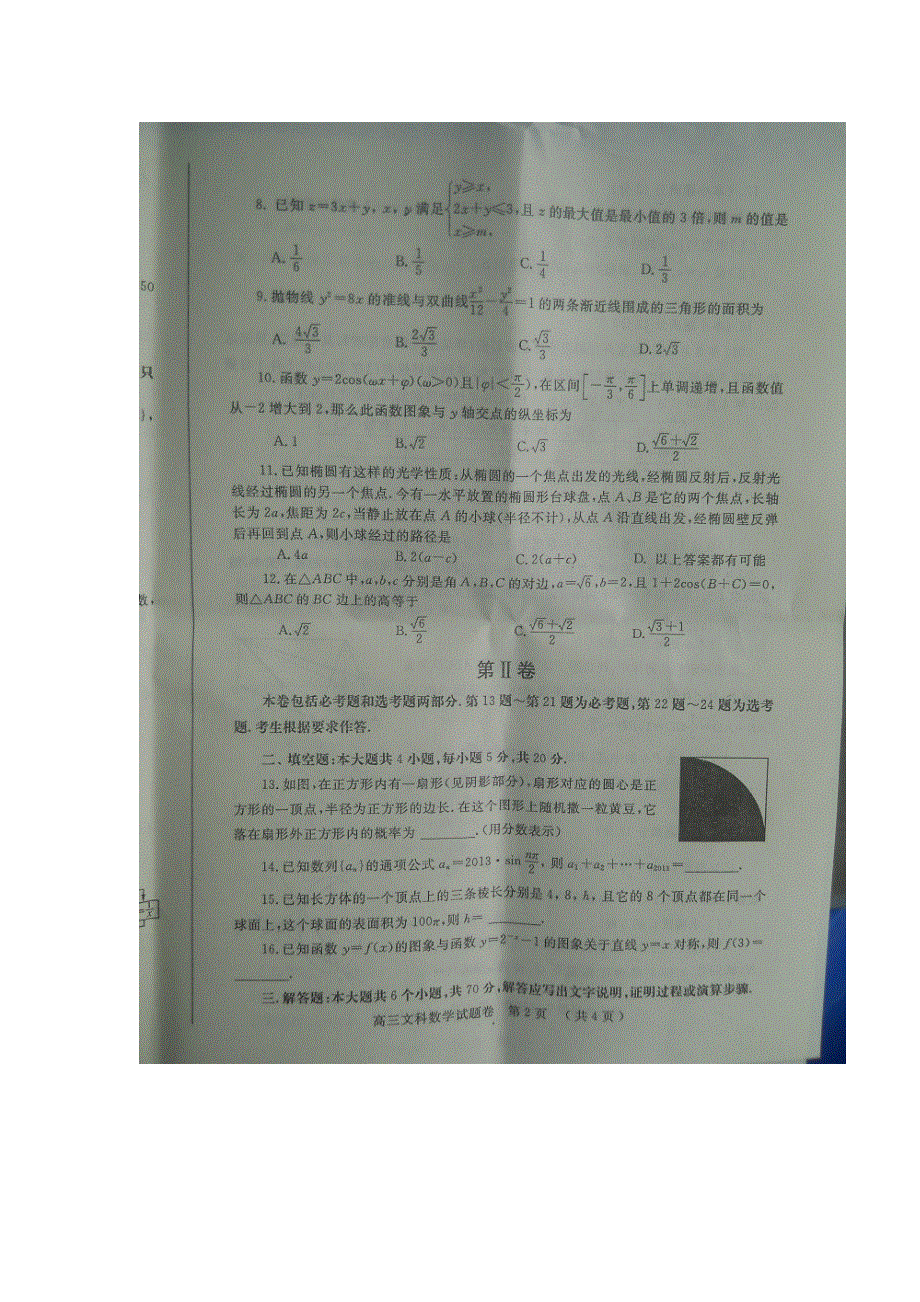 8. 已知 z=3x+y, x, y 满足{y⩾x, 2x+y⩽3, x⩾m, 且 z 的最大值是最小值的 3 倍,则 m 的值是
A. 1/6 B. 1/5 C. 1/4 D. 1/3
50
9. 抛物线 y²=8x 的准线与双曲线 x²/12 - y²/4 =1 的两条渐近线围成的三角形的面积为
A. 4√3/3 B. 2√3/3 C. √3/3 D. 2√3
只
10. 函数 y=2cos(ωx+φ)(ω>0)且|φ|<π/2),在区间[-π/3, π/6]上单调递增,且函数值
从-2 增大到 2,那么此函数图象与 y 轴交点的纵坐标为
A. 1 B. √2 C. √3 D. (√6+√2)/2
11. 已知椭圆有这样的光学性质:从椭圆的一个焦点出发的光线,经椭圆反射后,反射光
线经过椭圆的另一个焦点.今有一水平放置的椭圆形台球盘,点 A、B 是它的两个焦点,长轴
长为 2a,焦距为 2c,当静止放在点 A 的小球(半径不计),从点 A 沿直线出发,经椭圆壁反弹
后再回到点 A,则小球经过的路径是
A. 4a B. 2(a-c) C. 2(a+c) D. 以上答案都有可能
12. 在△ABC 中,a,b,c 分别是角 A,B,C 的对边,a=√6,b=2,且 1+2cos(B+C)=0,
则△ABC 的 BC 边上的高等于
数,
A. √2 B. √6/2 C. (√6+√2)/2 D. (√3+1)/2
第Ⅱ卷
本卷包括必考题和选考题两部分.第 13 题～第 21 题为必考题,第 22 题～24 题为选考
题.考生根据要求作答.
二、填空题:本大题共 4 小题,每小题 5 分,共 20 分.
13. 如图,在正方形内有一扇形(见阴影部分),扇形对应的圆心是正
方形的一顶点,半径为正方形的边长.在这个图形上随机撒一粒黄豆,它
落在扇形外正方形内的概率为 ________.(用分数表示)
14. 已知数列{aₙ}的通项公式 aₙ=2013·sin nπ/2, 则 a₁+a₂+…+a₂₀₁₃=________.
15. 已知长方体的一个顶点上的三条棱长分别是 4,8,h, 且它的 8 个顶点都在同一个
球面上,这个球面的表面积为 100π,则 h= ________.
16. 已知函数 y=f(x)的图象与函数 y=2⁻ˣ-1 的图象关于直线 y=x 对称,则 f(3)=
________.
三.解答题:本大题共 6 个小题,共 70 分,解答应写出文字说明,证明过程或演算步骤.
高三文科数学试题卷 第 2 页 (共 4 页)